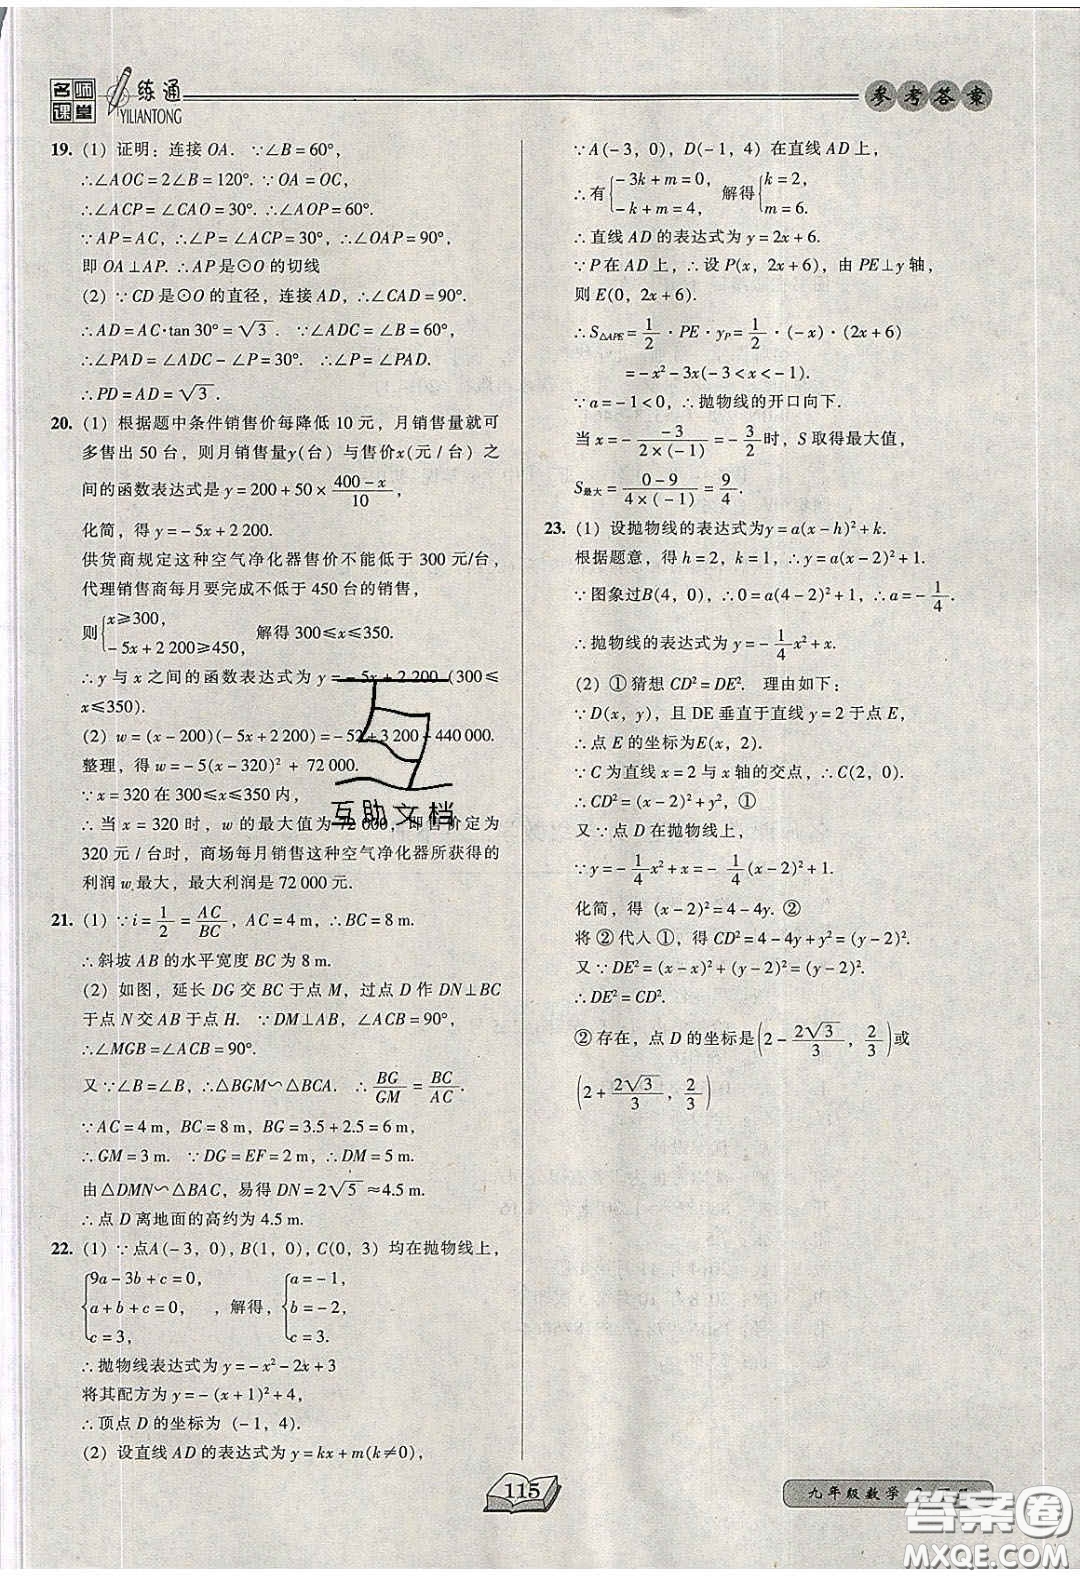 名师课堂
一练通
YILIANTONG
参考答案
19. (1) 证明：连接 OA. ∵∠B=60°，
∴∠AOC=2∠B=120°. ∵OA=OC，
∴∠ACP=∠CAO=30°. ∴∠AOP=60°.
∵AP=AC，∴∠P=∠ACP=30°. ∴∠OAP=90°，
即 OA⊥AP. ∴AP是⊙O的切线
(2) ∵CD是⊙O的直径，连接AD，∴∠CAD=90°.
∴AD=AC·tan 30°=√3. ∵∠ADC=∠B=60°，
∴∠PAD=∠ADC-∠P=30°. ∴∠P=∠PAD.
∴PD=AD=√3.
20. (1) 根据题中条件销售价每降低 10 元，月销售量就可
多售出 50 台，则月销售量y(台) 与售价x(元/台) 之
间的函数表达式是 y=200+50×(400-x)/10，
化简，得 y=-5x+2 200.
供货商规定这种空气净化器售价不能低于 300 元/台，
代理销售商每月要完成不低于 450 台的销售，
则{x≥300, -5x+2 200≥450, 解得 300≤x≤350.
∴y 与 x 之间的函数表达式为 y=-5x+2 200 (300≤
x≤350).
(2) w=(x-200)(-5x+2 200)=-5x²+3 200-440 000.
整理，得 w=-5(x-320)²+72 000.
∵x=320 在 300≤x≤350 内，
∴当 x=320 时，w 的最大值为 72 000，即售价定为
320 元/台时，商场每月销售这种空气净化器所获得的
利润 w 最大，最大利润是 72 000 元.
21. (1) ∵i=1/2=AC/BC，AC=4 m，∴BC=8 m.
∴斜坡 AB 的水平宽度 BC 为 8 m.
(2) 如图，延长 DG 交 BC 于点 M，过点 D 作 DN⊥BC
于点 N 交 AB 于点 H. ∵DM⊥AB，∠ACB=90°，
∴∠MGB=∠ACB=90°.
又∵∠B=∠B，∴△BGM∽△BCA. ∴BG/GM=BC/AC.
∵AC=4 m，BC=8 m，BG=3.5+2.5=6 m，
∴GM=3 m. ∵DG=EF=2 m，∴DM=5 m.
由△DMN∽△BAC，易得 DN=2√5≈4.5 m.
∴点 D 离地面的高约为 4.5 m.
22. (1) ∵点A(-3，0)，B(1，0)，C(0，3) 均在抛物线上，
{9a-3b+c=0, a+b+c=0, c=3, ，解得，{a=-1, b=-2, c=3,
∴抛物线表达式为 y=-x²-2x+3
将其配方为 y=-(x+1)²+4，
∴顶点 D 的坐标为 (-1，4).
(2) 设直线 AD 的表达式为 y=kx+m(k≠0)，
∵A(-3，0)，D(-1，4) 在直线 AD 上，
∴有{-3k+m=0, -k+m=4, 解得{k=2, m=6.
∴直线 AD 的表达式为 y=2x+6.
∵P在 AD 上，∴设 P(x，2x+6)，由 PE⊥y 轴，
则 E(0，2x+6).
∴S△APE=1/2·PE·yP=1/2·(-x)·(2x+6)
=-x²-3x(-3<x<-1).
∵a=-1<0，∴抛物线的开口向下.
当 x=-(-3)/(2×(-1))=-3/2时，S 取得最大值，
S最大=(0-9)/(4×(-1))=9/4.
23. (1) 设抛物线的表达式为y=a(x-h)²+k.
根据题意，得 h=2，k=1，∴y=a(x-2)²+1.
∵图象过B(4，0)，∴0=a(4-2)²+1，∴a=-1/4.
∴抛物线的表达式为 y=-1/4x²+x.
(2) ①猜想 CD²=DE². 理由如下：
∵D(x，y)，且 DE 垂直于直线 y=2 于点 E，
∴点 E 的坐标为E(x，2).
∵C 为直线 x=2 与 x 轴的交点，∴C(2，0).
∴CD²=(x-2)²+y²，①
又∵点 D 在抛物线上，
∵y=-1/4x²+x=-1/4(x-2)²+1，
化简，得 (x-2)²=4-4y. ②
将②代人①，得 CD²=4-4y+y²=(y-2)².
又∵DE²=(x-x)²+(y-2)²=(y-2)².
∴DE²=CD².
②存在，点 D 的坐标是(2-2√3/3，2/3)或
(2+2√3/3，2/3)
互助文档
115
九年级数学
答案圈
MXQE.COM